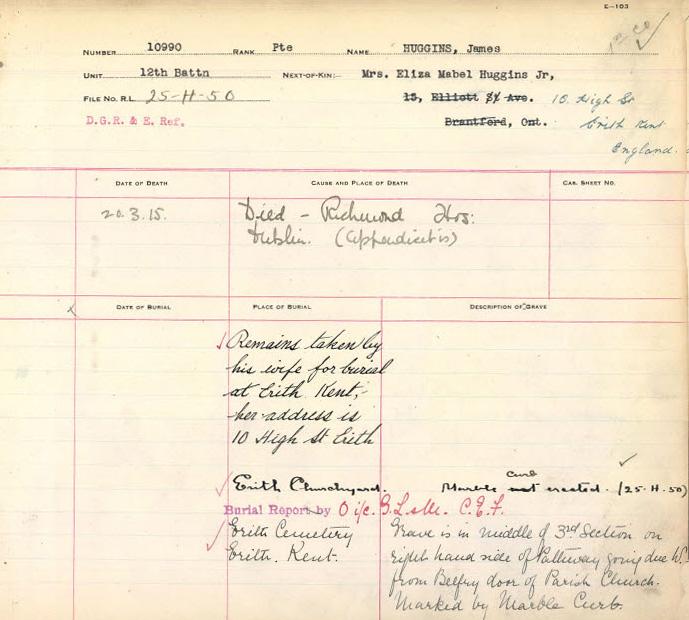 E-103
1st CO
NUMBER 10990 RANK Pte NAME HUGGINS, James
UNIT 12th Battn NEXT-OF-KIN:— Mrs. Eliza Mabel Huggins Jr,
FILE NO. R.L. 25-H-50 15, Elliott Ave. 10. High St
D.G.R. & E. Ref. Brantford, Ont. Erith Kent
England.
DATE OF DEATH CAUSE AND PLACE OF DEATH CAS. SHEET NO.
20.3.15. Died – Richmond Hos:
Dublin. (appendicitis)
DATE OF BURIAL PLACE OF BURIAL DESCRIPTION OF GRAVE
Remains taken by
his wife for burial
at Erith Kent,-
her address is
10 High St Erith
curb
Erith Churchyard. Marble not erected. (25-H-50)
Burial Report by O i/c. C.E.F.
Erith Cemetery Grave is in middle of 3rd Section on
Erith. Kent. right hand side of Pathway going due W.
from Belfry door of Parish Church.
Marked by Marble Curb.